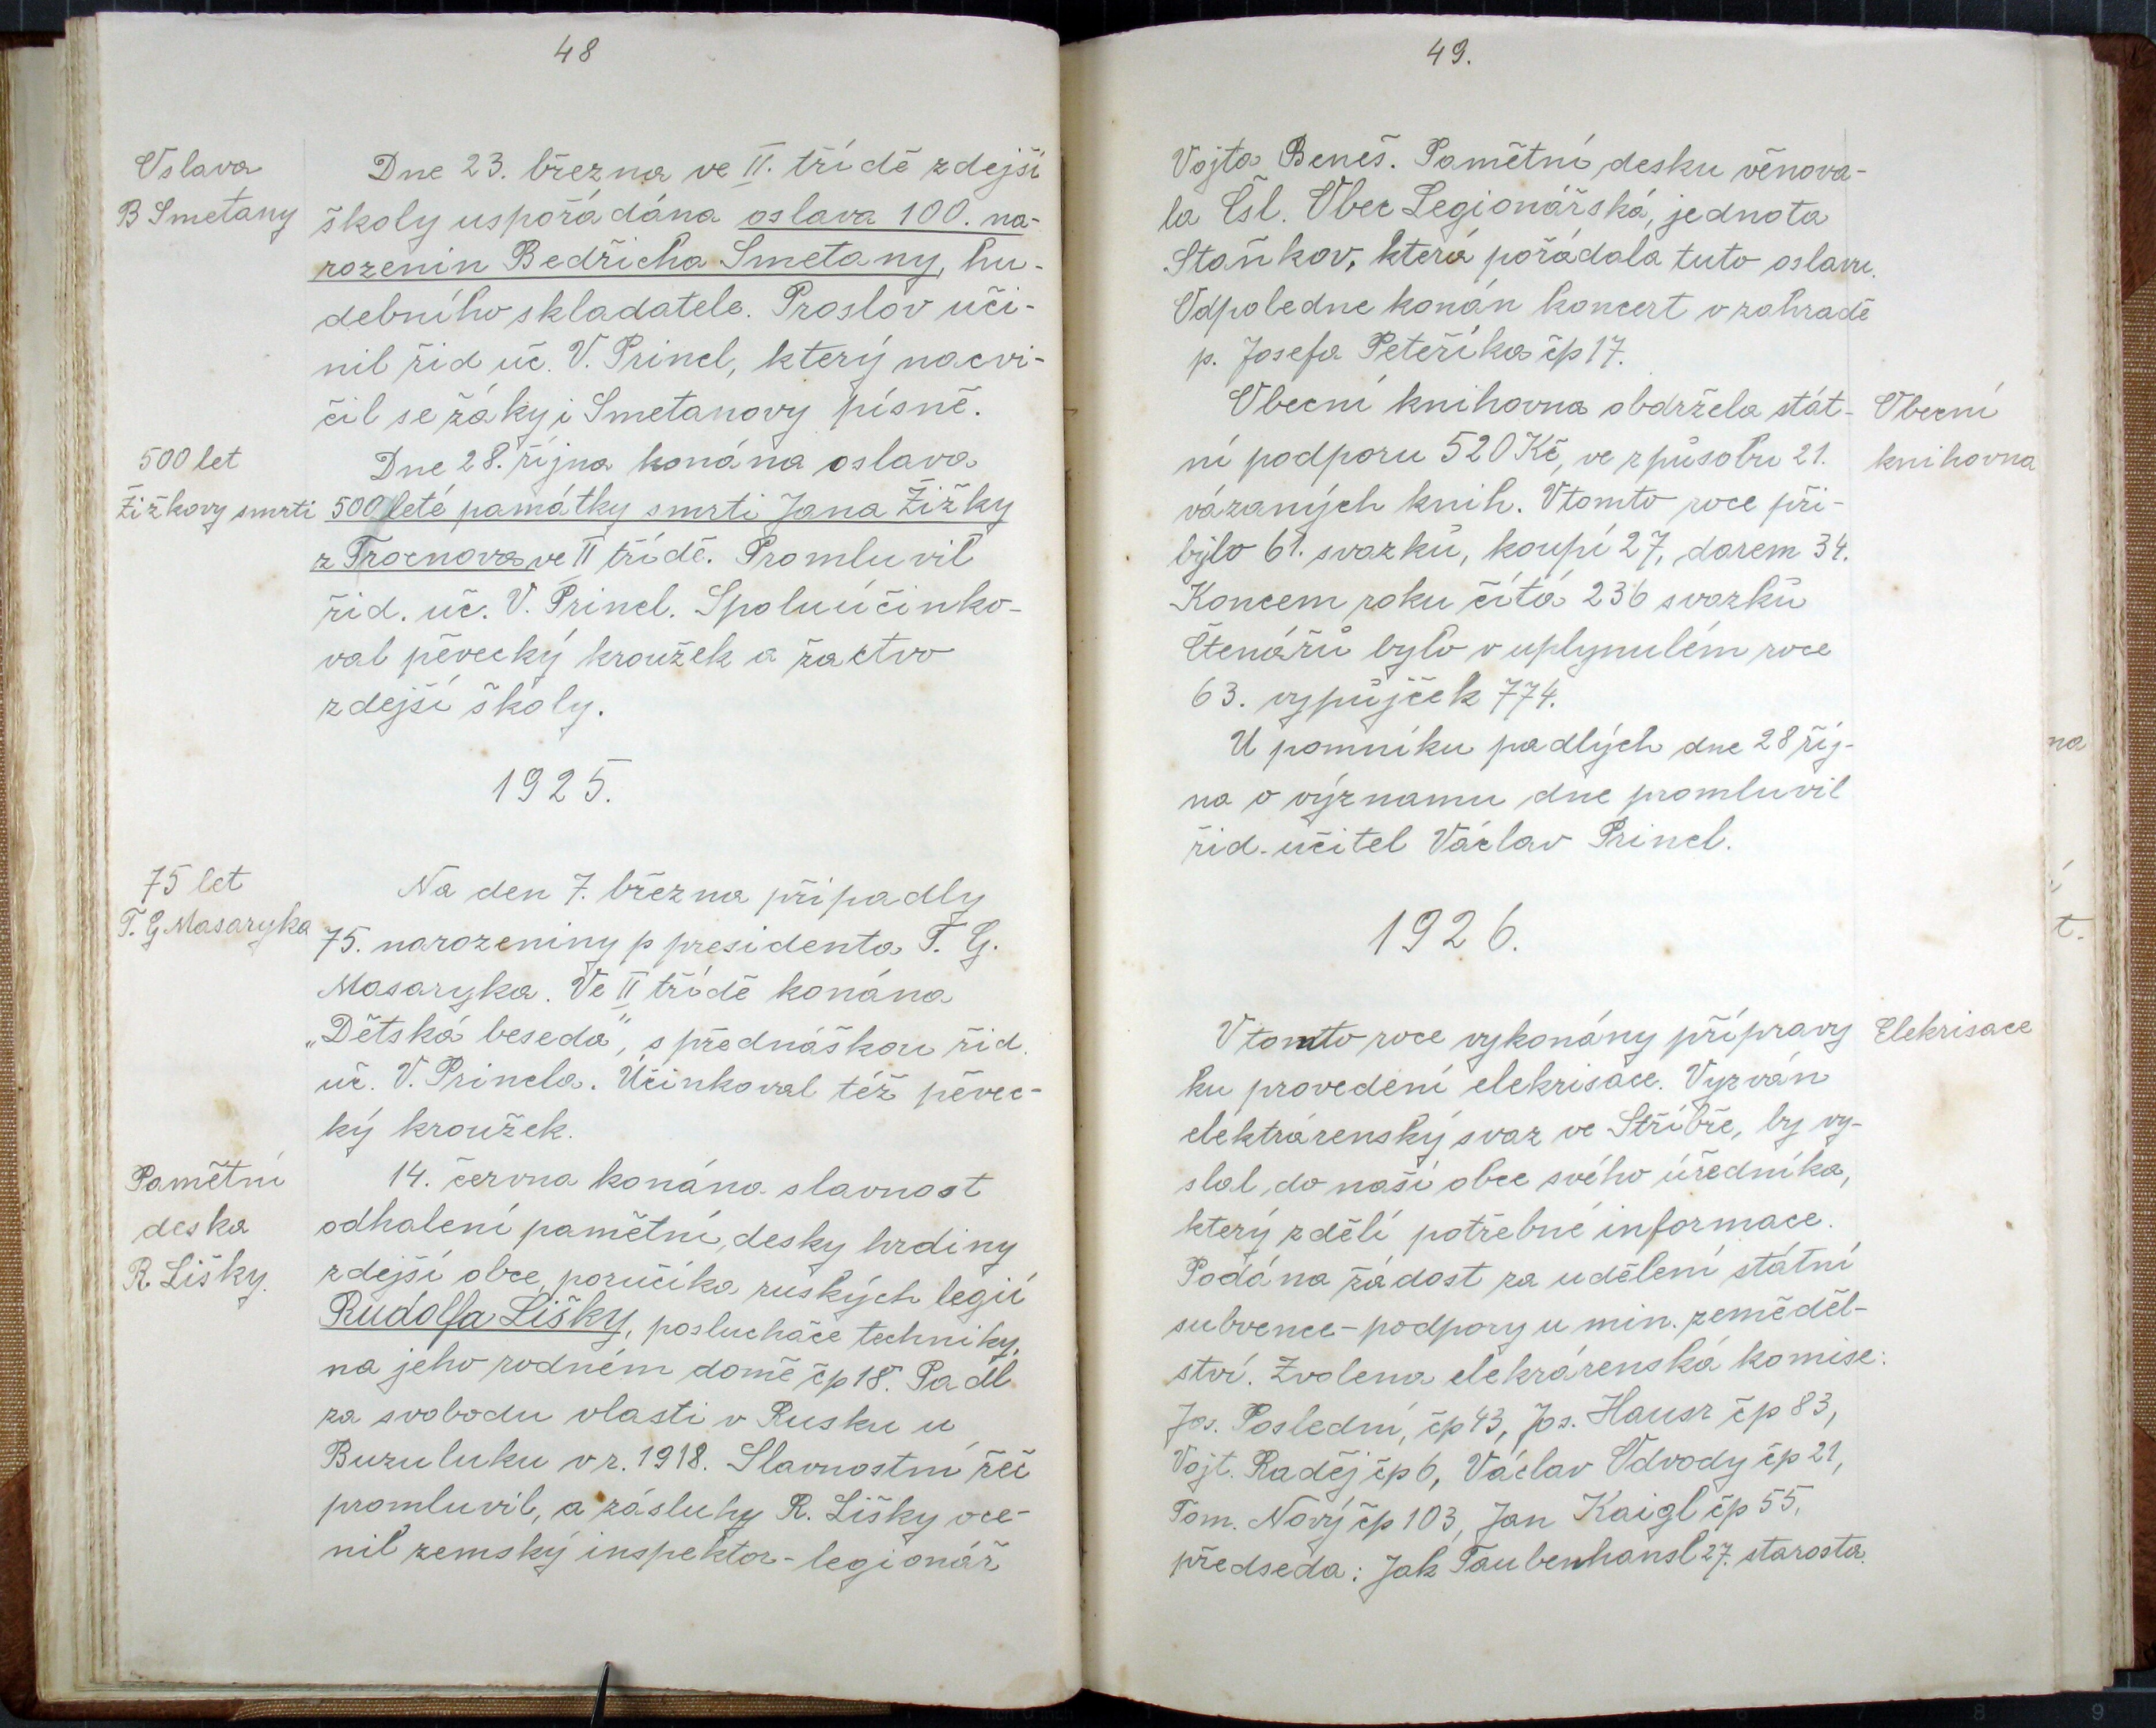 48
Oslava
B Smetany
Dne 23. března ve II. třídě zdejší
školy uspořádána oslava 100. na-
rozenin Bedřicha Smetany, hu-
debního skladatele. Proslov uči-
nil řid uč. V. Princl, který nacvi-
čil se žáky i Smetanovy písně.
500 let
Žižkovy smrti
Dne 28. října konána oslava
500 leté památky smrti Jana Žižky
z Trocnova ve II třídě. Promluvil
řid. uč. V. Princl. Spoluúčinko-
val pěvecký kroužek a žactvo
zdejší školy.
1925.
75 let
T. G Masaryka
Na den 7. března připadly
75. narozeniny p presidenta T. G.
Masaryka. Ve II třídě konána
„Dětská beseda", s přednáškou řid.
uč. V. Princla. Účinkoval též pěvec-
ký kroužek.
Pamětní
deska
R. Lišky.
14. června konána slavnost
odhalení pamětní, desky hrdiny
zdejší obce, poručíka ruských legií
Rudolfa Lišky, posluchače techniky,
na jeho rodném domě čp 18. Padl
za svobodu vlasti v Rusku u
Buzuluku v r. 1918. Slavnostní řeč
promluvil, a zásluhy R. Lišky oce-
nil zemský inspektor - legionář
49.
Vojta Beneš. Pamětní desku věnova-
la Čsl. Obec Legionářská, jednota
Staňkov, která pořádala tuto oslavu.
Odpoledne konán koncert v zahradě
p. Josefa Peteříka čp 17.
Obecní
knihovna
Obecní knihovna obdržela stát-
ní podporu 520 Kč, ve způsobu 21.
vázaných knih. V tomto roce při-
bylo 61. svazků, koupí 27, darem 34.
Koncem roku čítá 236 svazků
Čtenářů bylo v uplynulém roce
63. vypůjček 774.
U pomníku padlých dne 28 říj-
na o významu dne promluvil
řid. učitel Václav Princl.
1926.
Elekrisace
V tomto roce vykonány přípravy
ku provedení elekrisace. Vyzván
elektrárenský svaz ve Stříbře, by vy-
slal do naší obce svého úředníka,
který zdělí potřebné informace.
Podána žádost za udělení státní
subvence - podpory u min. zeměděl-
ství. Zvolena elekrárenská komise:
Jos. Poslední, čp 43, Jos. Hausr čp 83,
Vojt. Raděj čp 6, Václav Odvody čp 21,
Tom. Nový čp 103, Jan Kaigl čp 55,
předseda: Jak Taubenhansl 27. starosta.
na
t.